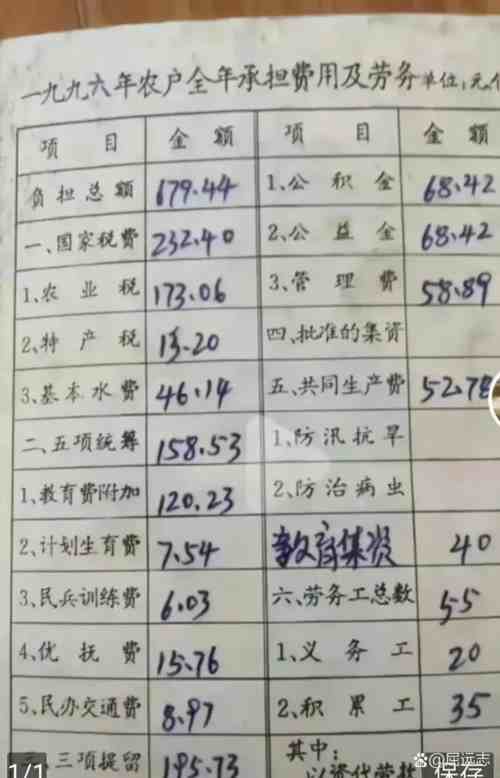 一九九六年农户全年承担费用及劳务 单位:元、个
项目 金额 项目 金额
负担总额 679.44 1、公积金 68.42
一、国家税费 232.40 2、公益金 68.42
1、农业税 173.06 3、管理费 58.89
2、特产税 13.20 四、批准的集资
3、基本水费 46.14 五、共同生产费 52.78
二、五项统筹 158.53 1、防汛抗旱
1、教育费附加 120.23 2、防治病虫
2、计划生育费 7.54 教育集资 40
3、民兵训练费 6.03 六、劳务工总数 55
4、优抚费 15.76 1、义务工 20
5、民办交通费 8.97 2、积累工 35
三、三项提留 195.73 其中:
以资代劳款
1/1
保存
@屈远志